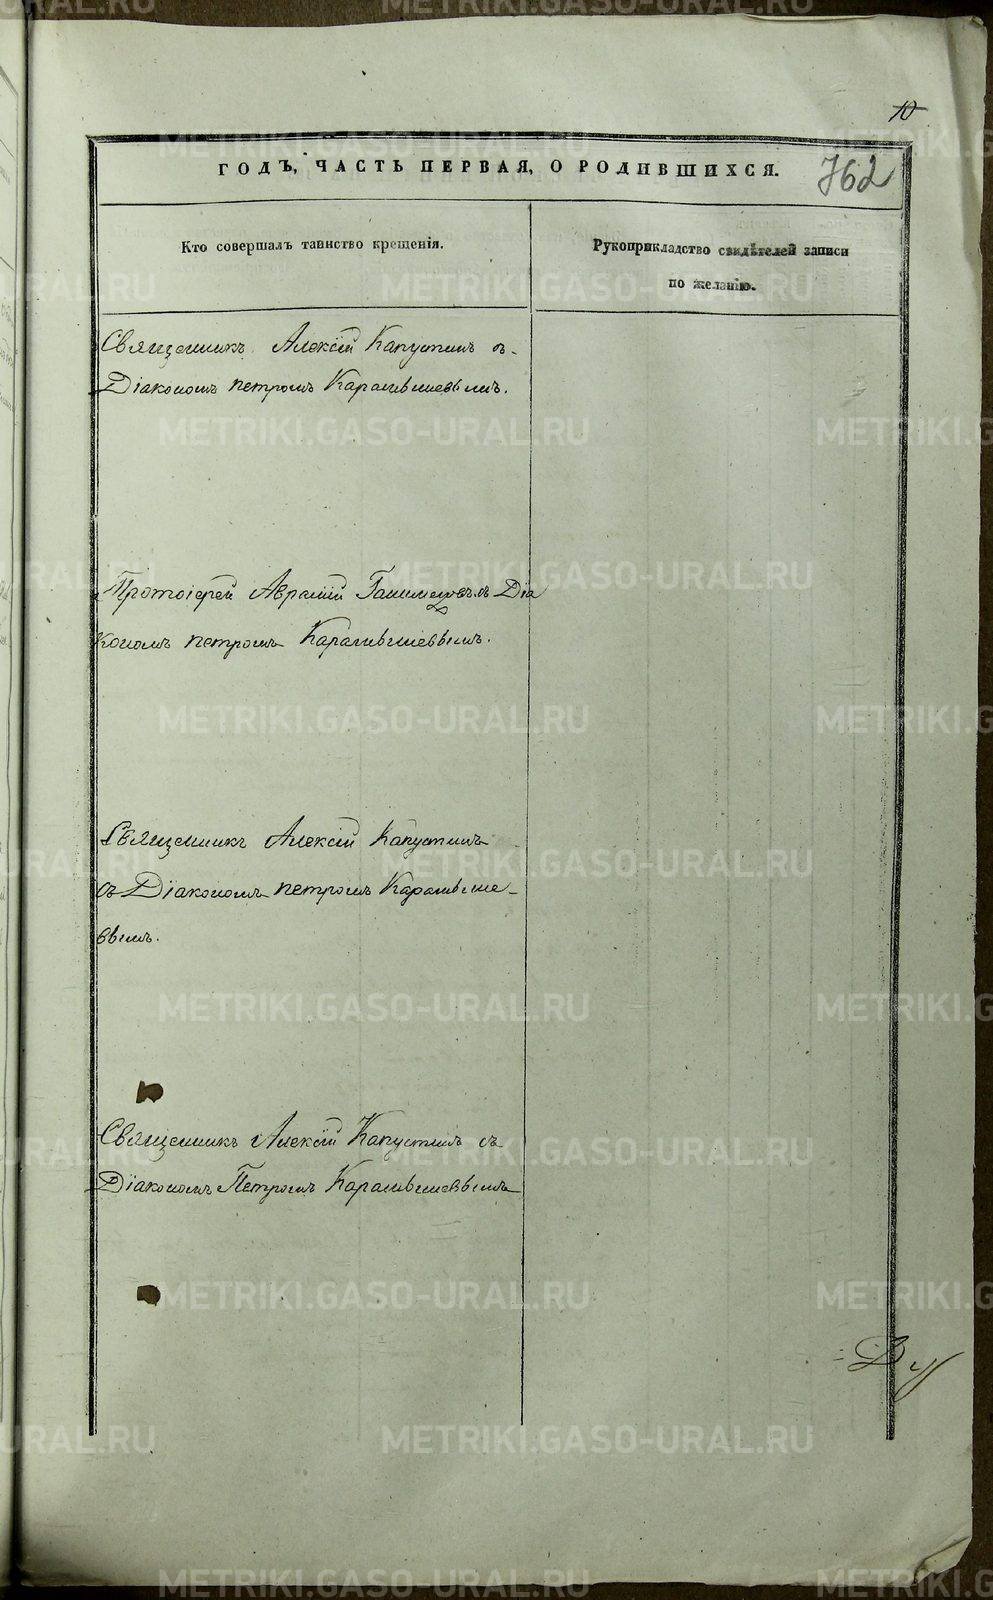 10
762
ГОДЪ, ЧАСТЬ ПЕРВАЯ, О РОДИВШИХСЯ.
Кто совершалъ таинство крещенія.
Рукоприкладство свидѣтелей записи
по желанію.
Священникъ Алексій Капустинъ съ
Діакономъ петромъ Карамышевымъ.
Протоіерей Аврамій Діа
кономъ петромъ Карамышевымъ.
Священникъ Алексій Капустинъ
съ Діакономъ петромъ Карамыше-
вымъ.
Священникъ Алексій Капустинъ съ
Діакономъ Петромъ Карамышевымъ
METRIKI.GASO-URAL.RU